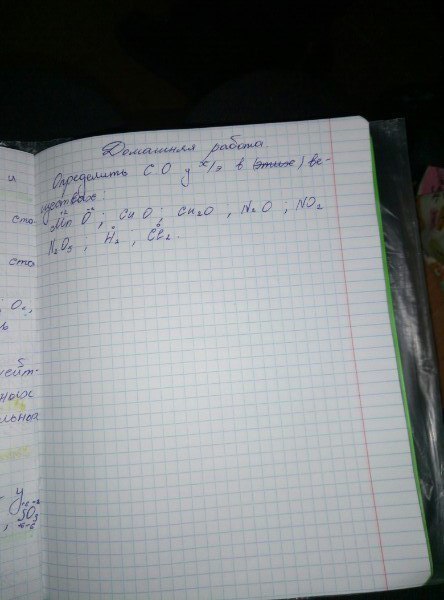 Домашняя работа.
и
Определить С О у х/э в (этих) ве-
ществах:
сто
+2 -2
Mn O ; Cu O ; Cu2O , N2O ; NO2
0 0
N2O3 ; H2 ; Cl2.
сто
O2,
5
ейт-
ных
льноа
SO3